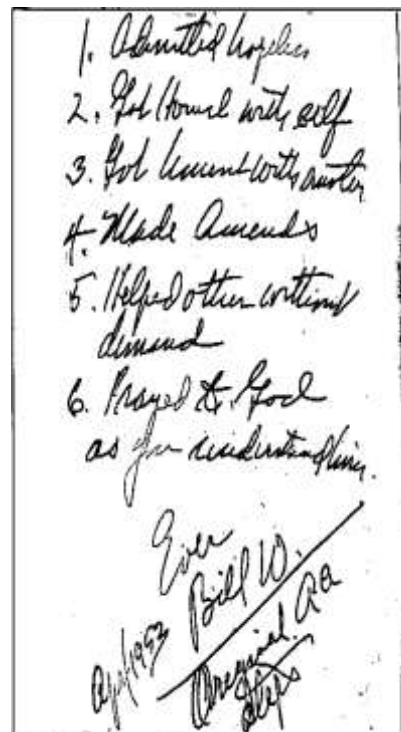 1. Admitted hopeless
2. Got Honest with self
3. Got honest with another
4. Made Amends
5. Helped other without
demand
6. Prayed to God
as you understand Him.
Ever
Bill W.
Apr/1953
Original AA
Steps